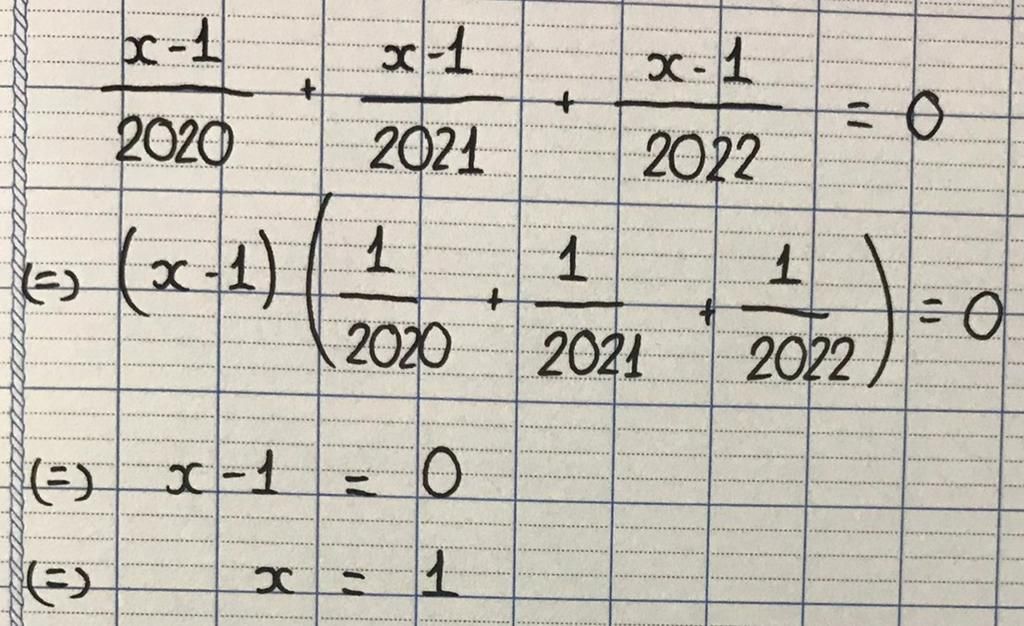 x-1/2020 + x-1/2021 + x-1/2022 = 0
(=) (x-1) (1/2020 + 1/2021 + 1/2022) = 0
(=) x-1 = 0
(=) x = 1